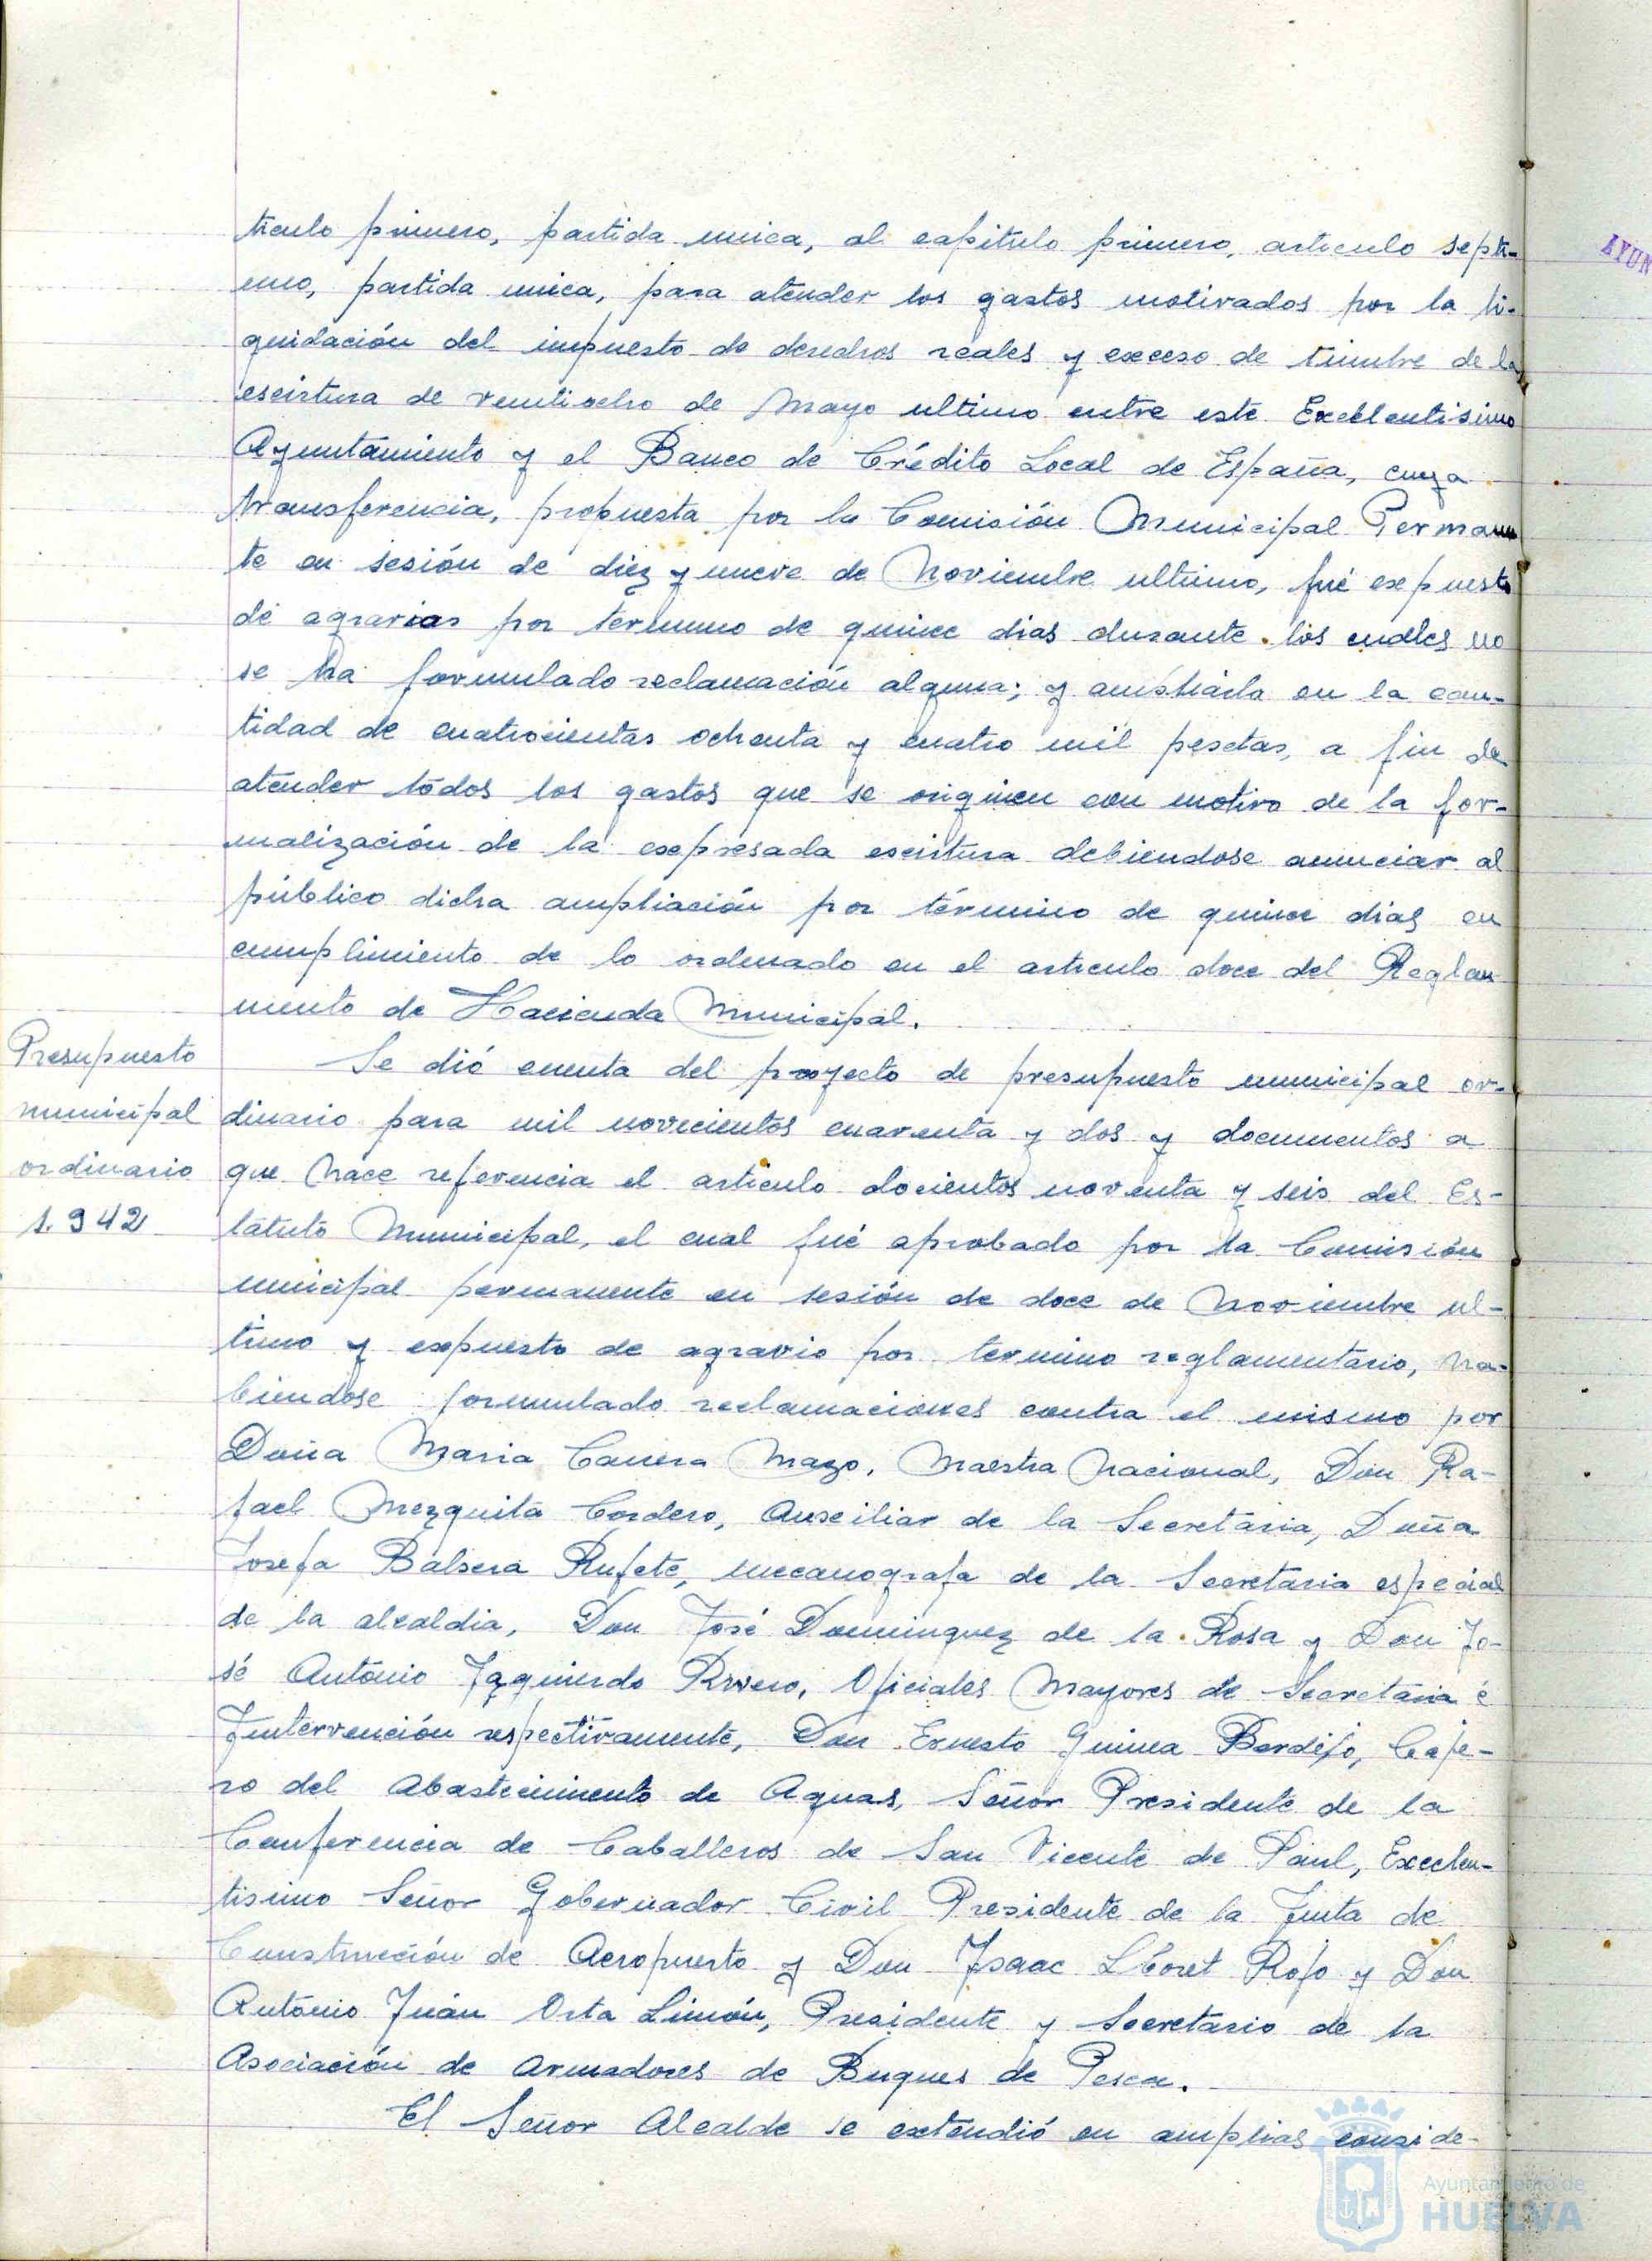 ticulo primero, partida unica, al capitulo primero, articulo septi-
mo, partida unica, para atender los gastos motivados por la li-
quidación del impuesto de derechos reales y exceso de timbre de la
escritura de veintiocho de Mayo ultimo entre este Excelentisimo
Ayuntamiento y el Banco de Crédito Local de España, cuya
transferencia, propuesta por la Comisión Municipal Permanen
te en sesión de diez y nueve de Noviembre ultimo, fué expuesta
de agravios por termino de quince dias durante los cuales no
se ha formulado reclamación alguna; y ampliarla en la can-
tidad de cuatrocientas ochenta y cuatro mil pesetas, a fin de
atender todos los gastos que se originen con motivo de la for-
malización de la expresada escritura debiendose anunciar al
público dicha ampliación por término de quince dias en
cumplimiento de lo ordenado en el articulo doce del Regla
mento de Hacienda Municipal.
Presupuesto
municipal
ordinario
1.942
Se dió cuenta del proyecto de presupuesto municipal or-
dinario para mil novecientos cuarenta y dos y documentos a
que hace referencia el articulo docientos noventa y seis del Es-
tatuto Municipal, el cual fué aprobado por la Comisión
municipal permanente en sesión de doce de Noviembre ul-
timo y expuesto de agravio por termino reglamentario, ha-
biendose formulado reclamaciones contra el mismo por
Doña Maria Mazo, Maestra Nacional, Don Ra-
fael Mezquita Cordero, Auxiliar de la Secretaria, Doña
Josefa Balsera Rufete, mecanografa de la Secretaria especial
de la alcaldia, Don José Dominguez de la Rosa y Don Jo-
sé Antonio Izquierdo Rivero, Oficiales Mayores de Secretaria é
Intervención respectivamente, Don Ernesto Guinea Berdejo, Caje-
ro del Abastecimiento de Aguas, Señor Presidente de la
Conferencia de Caballeros de San Vicente de Paul, Excelen-
tisimo Señor Gobernador Civil Presidente de la Junta de
Construcción de Aeropuerto y Don Isaac Lloret Rojo y Don
Antonio Juán Orta Limón, Presidente y Secretario de la
Asociación de Armadores de Buques de Pesca.
El Señor Alcalde se extendió en amplias conside-
AYUN
Ayuntamiento de
HUELVA